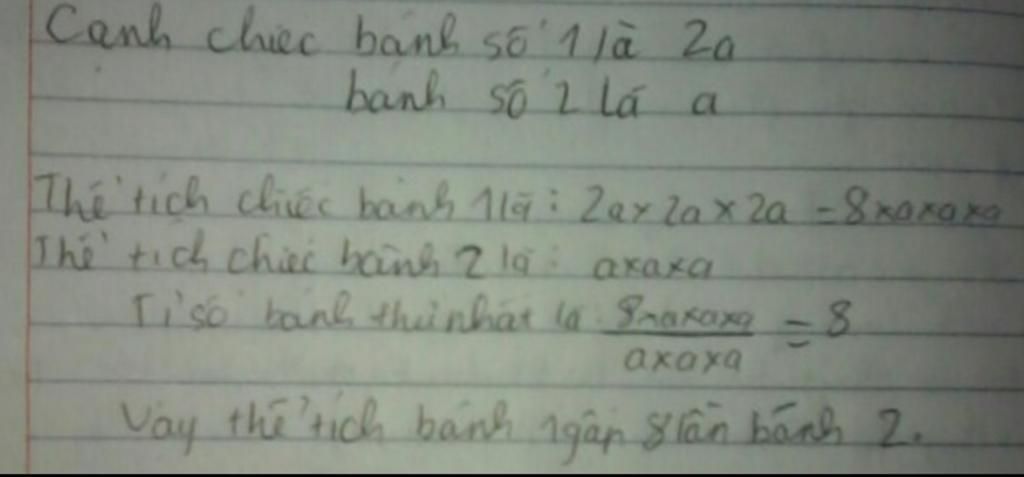 Cạnh chiếc bánh số 1 là 2a
bánh số 2 là a
Thể tích chiếc bánh 1 là : 2a x 2a x 2a = 8 x a x a x a
Thể tích chiếc bánh 2 là : a x a x a
Tỉ số bánh thứ nhất là 8 x a x a x a / a x a x a = 8
Vậy thể tích bánh 1 gấp 8 lần bánh 2.